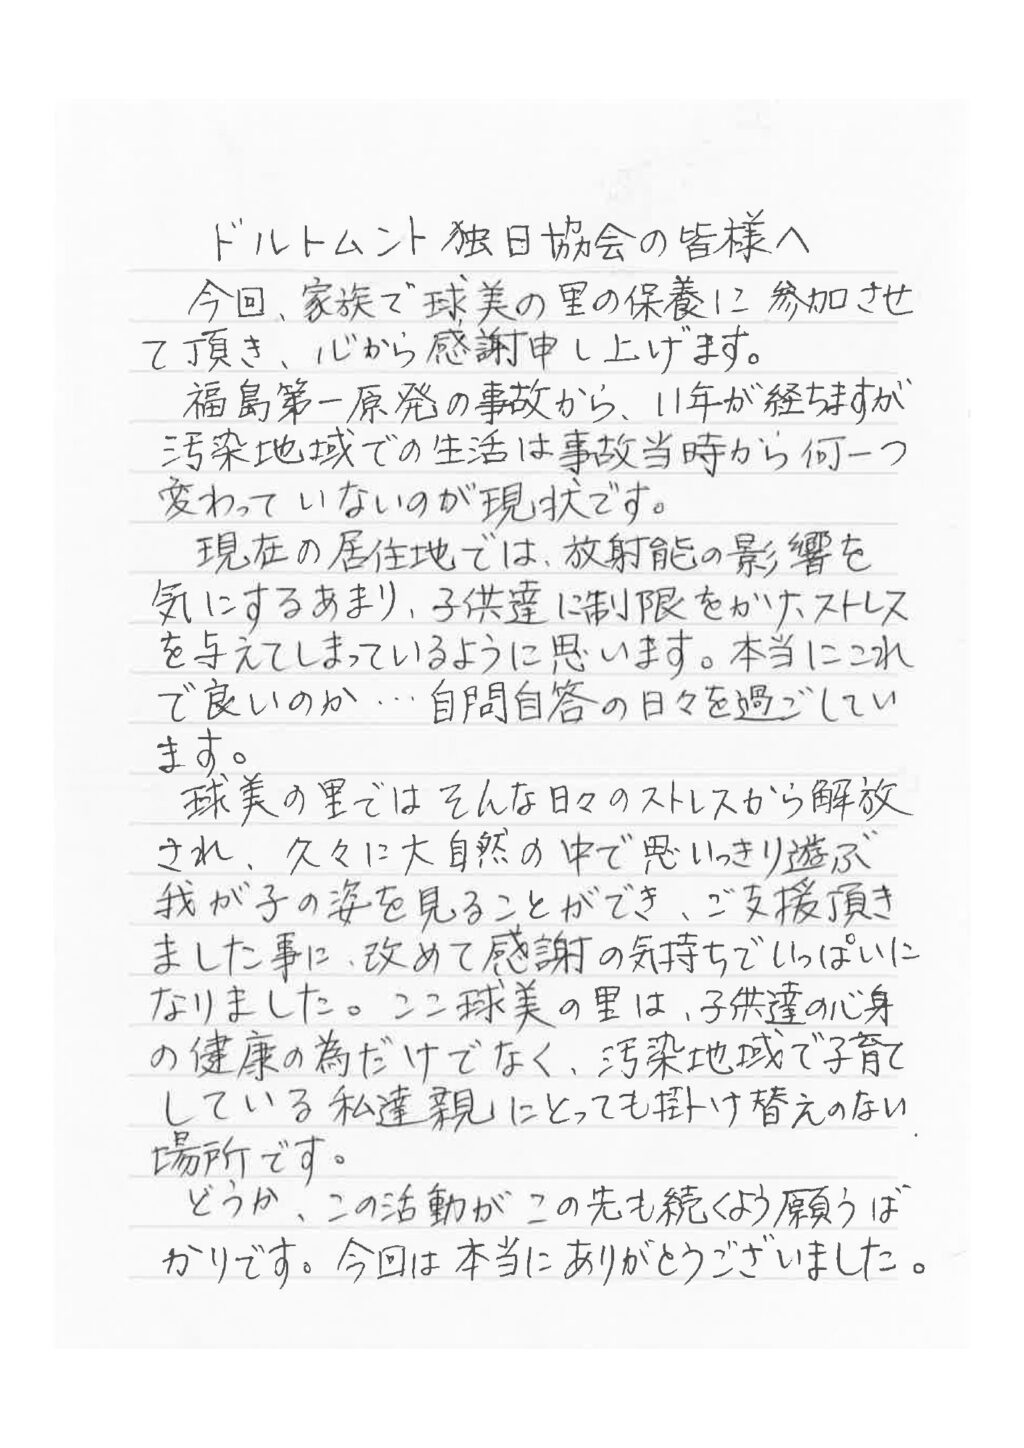 ドルトムント独日協会の皆様へ
今回、家族で球美の里の保養に参加させ
て頂き、心から感謝申し上げます。
福島第一原発の事故から、11年が経ちますが
汚染地域での生活は事故当時から何一つ
変わっていないのが現状です。
現在の居住地では、放射能の影響を
気にするあまり、子供達に制限をかけ、ストレス
を与えてしまっているように思います。本当にこれ
で良いのか…自問自答の日々を過ごしてい
ます。
球美の里ではそんな日々のストレスから解放
され、久々に大自然の中で思いっきり遊ぶ
我が子の姿を見ることができ、ご支援頂き
ました事に、改めて感謝の気持ちでいっぱいに
なりました。ここ球美の里は、子供達の心身
の健康の為だけでなく、汚染地域で子育て
している私達親にとっても掛け替えのない
場所です。
どうか、この活動がこの先も続くよう願うば
かりです。今回は本当にありがとうございました。